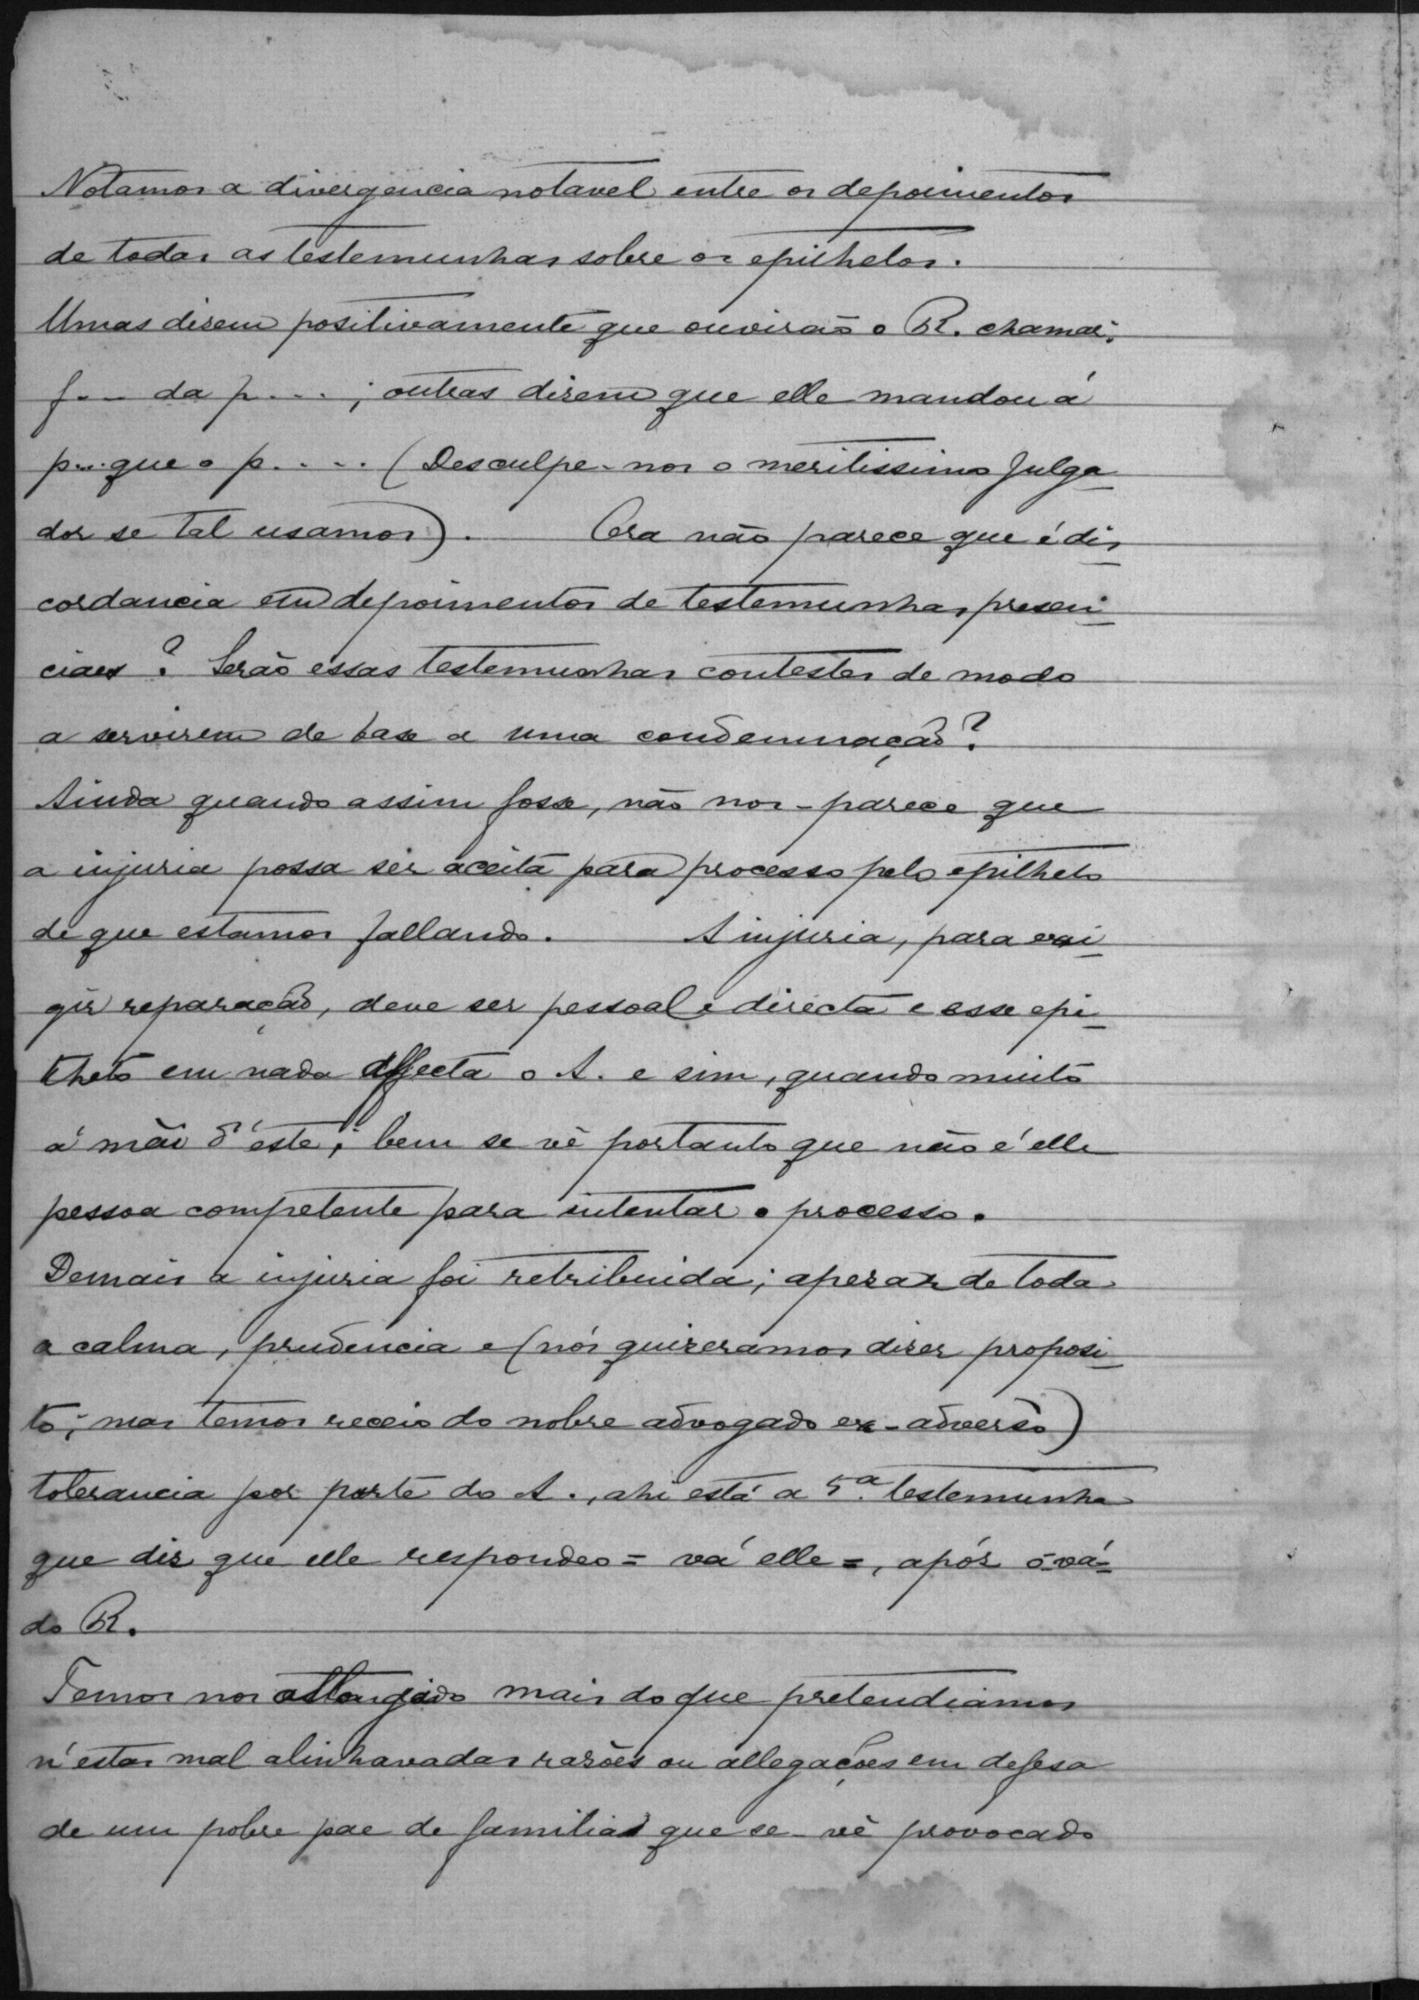 Notamos a divergencia notavel entre os depoimentos
de todas as testemunhas sobre os epithetos.
Umas disem positivamente que ouvirão o R. chamar:
f... da p....; outras disem que elle mandou á
p... que o p..... (Desculpe-nos o meritissimo Julga-
dor se tal usamos). Ora não parece que é dis
cordancia em depoimentos de testemunhas presen-
ciaes? Serão essas testemunhas contestes de modo
a servirem de base a uma condemnação?
Ainda quando assim fosse, não nos-parece que
a injuria possa ser aceita para processo pelo epitheto
de que estamos fallando. A injuria, para exi-
gir reparação, deve ser pessoal e directa e esse epi-
theto em nada affecta o A. e sim, quando muito
á mãi d'este; bem se vê portanto que não é elle
pessoa competente para intentar o processo.
Demais a injuria foi retribuida; apesar de toda
a calma, prudencia e (nós quizeramos diser proposi-
to; mas temos receio do nobre advogado ex-adverso)
tolerancia por parte do A., ahi está a 5ª testemunha
que dis que elle respondeo = vá elle =, após o =vá=
do R.
Temos nos allongado mais do que pretendiamos
n'estas mal alinhavadas rasões ou allegações em defesa
de um pobre pae de familia que se-vê provocado